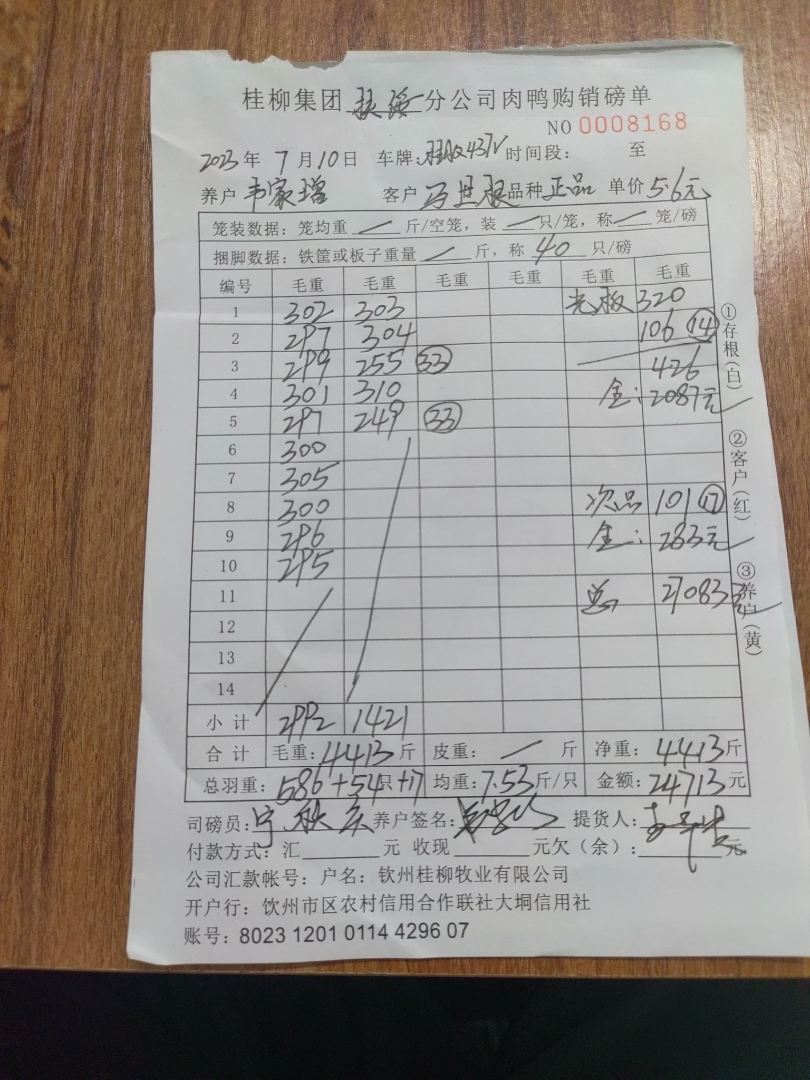 桂柳集团 扶绥 分公司肉鸭购销磅单
NO 0008168
2023年 7月10日 车牌: 时间段: 至
养户 韦家增 客户 冯世根 品种 正品 单价 5.6元
笼装数据:笼均重 / 斤/空笼,装 / 只/笼,称 / 笼/磅
捆脚数据:铁筐或板子重量 / 斤,称 40 只/磅
编号 毛重 毛重 毛重 毛重 毛重 毛重
1 302 303 光板 320
2 297 304 106 ⑭
3 299 255 ㉝ 426
4 301 310 金: 2087元
5 297 249 ㉝
6 300
7 305
8 300 次品 101 ⑰
9 296 金: 283元
10 295
11 总 27083元
12
13
14
小计 2992 1421
合计 毛重: 4413斤 皮重: / 斤 净重: 4413斤
总羽重: 586+54只+17 均重: 7.53斤/只 金额: 24713元
司磅员: 宁秋庆 养户签名: 提货人:
付款方式:汇 元 收现 元欠(余): 元
公司汇款帐号:户名:钦州桂柳牧业有限公司
开户行:饮州市区农村信用合作联社大垌信用社
账号:8023 1201 0114 4296 07
①存根(白)
②客户(红)
③养户(黄)